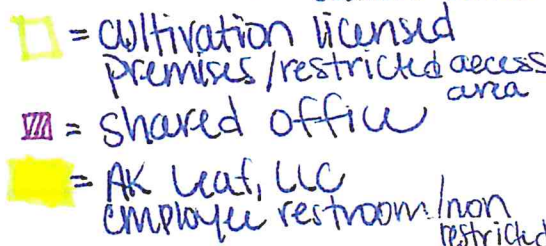 = cultivation licensed
premises/restricted access
area
= shared office
= AK Leaf, LLC
employee restroom/non
restricted